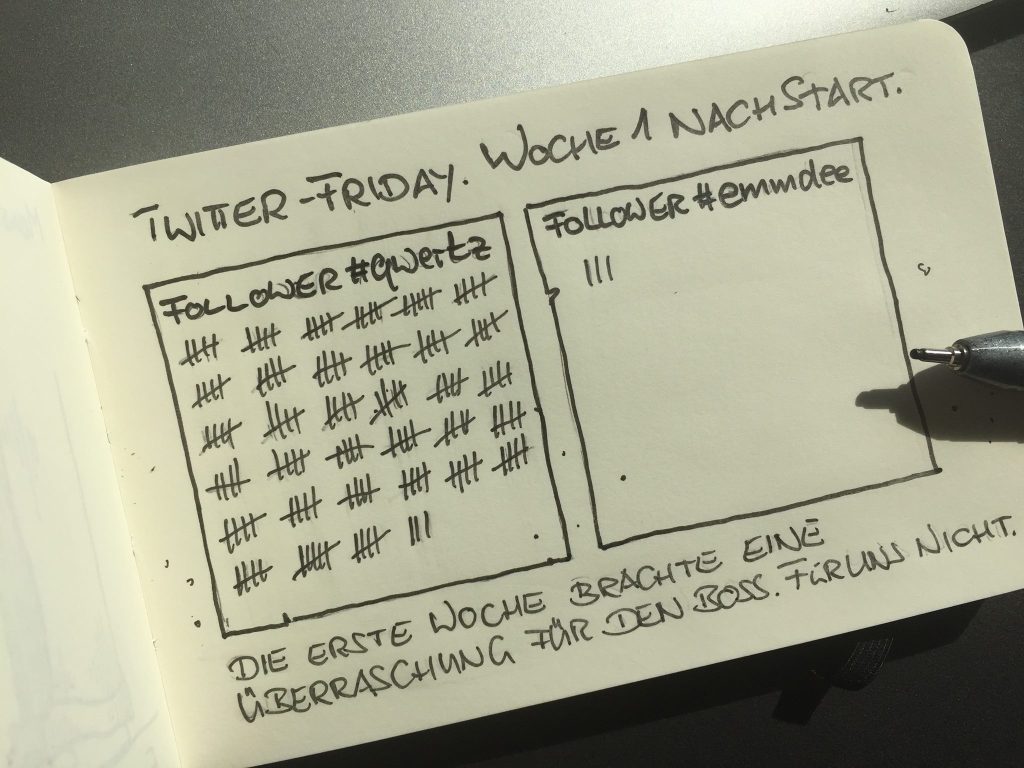 TWITTER-FRIDAY. WOCHE 1 NACH START.
FOLLOWER #qwertz
FOLLOWER #emmdee
DIE ERSTE WOCHE BRACHTE EINE
ÜBERRASCHUNG FÜR DEN BOSS. FÜR UNS NICHT.